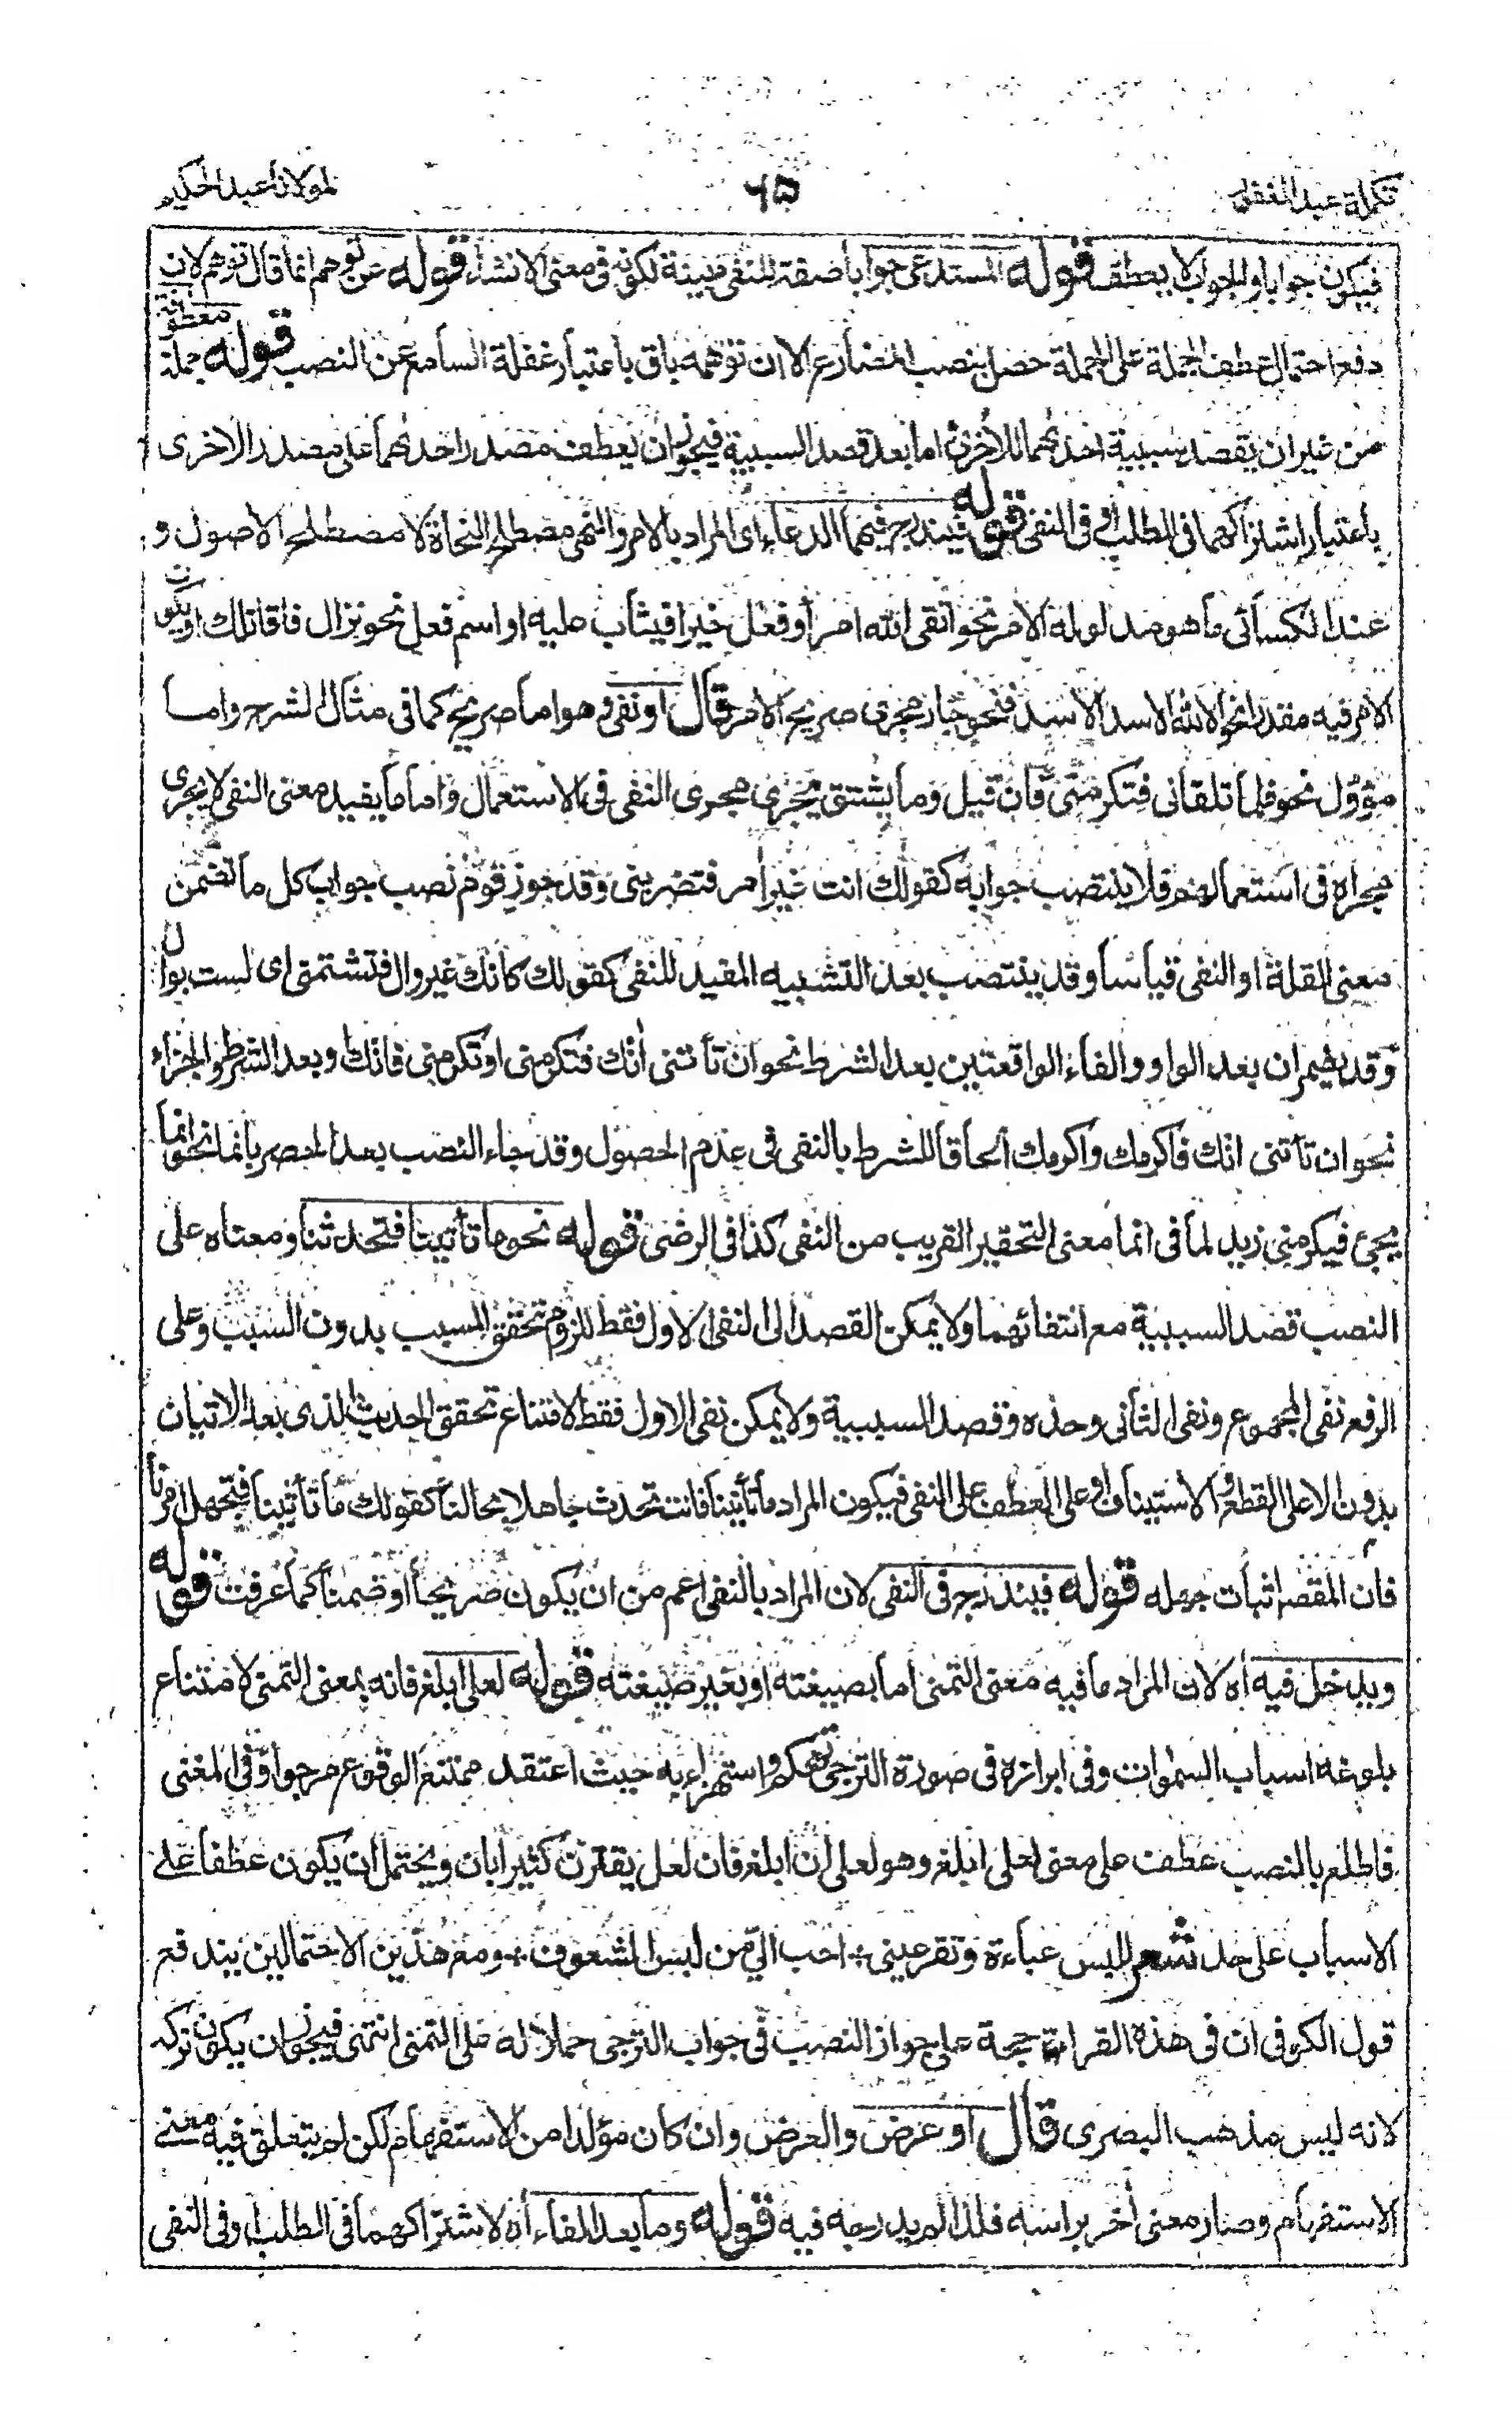 تكملة عبد الغفور
٦٥
لمولانا عبد الحكيم
فيكون جوابا والجواب لا يعطف قوله المستدعى جوابا صفة للنفى مبينة لكونه فى معنى الانشاء قوله عن توهم انما قال توهم لان
دفع احتمال عطف الجملة على الجملة حصل بنصب المضارع الا ان توهمه باق باعتبار غفلة السامع عن النصب قوله جملة معطوفة
من غير ان يقصد سببية احدٰهما للاخرى اما بعد قصد السببية فيجوز ان يعطف مصدر احدٰهما على مصدر الاخرى
باعتبار اشتراكهما فى الطلب او فى النفى قوله فيندرج فيهما الدعاء اى المراد بالامر والنهى مصطلح النحاة لا مصطلح الاصول و
عند الكسائى ما هو مدلوله الامر نحو اتقى الله امرأ وفعل خيرا فيثاب عليه او اسم فعل نحو نزال فاقاتلك او يكون
الامر فيه مقدرا نحو الاسد الاسد فتنجو جار مجرى صريح الامر قال او نفى وهو اما صريح كما فى مثال الشرح واما
مؤول نحو قلما تلقانى فتكرمنى فان قيل وما يشتق يجرى مجرى النفى فى الاستعمال واما ما يفيد معنى النفى لا يجرى
مجراه فى استعمالهم فلا ينتصب جوابه كقولك انت غير امر فتضربنى وقد جوز قوم نصب جواب كل ما تضمن
معنى القلة او النفى قياسا وقد ينتصب بعد التشبيه المفيد للنفى كقولك كانك غير وال فتشتمنى اى لست بوال
وقد يضمر ان بعد الواو والفاء الواقعتين بعد الشرط نحو ان تأتنى اٰتك فتكرمنى او تكرمنى فاٰتك وبعد الشرط والجزاء
نحو ان تأتنى اٰتك فاكرمك واكرمك الحاقا للشرط بالنفى فى عدم الحصول وقد جاء النصب بعد الحصر بانما نحو انما
يجئ فيكرمنى زيد لما فى انما معنى التحقير القريب من النفى كذا فى الرضى قوله نحو ما تأتينا فتحدثنا ومعناه على
النصب قصد السببية مع انتفائهما ولا يمكن القصد الى النفى الاول فقط للزوم تحقق المسبب بدون السبب وعلى
الرفع نفى المجموع ونفى الثانى وحده وقصد السببية ولا يمكن نفى الاول فقط لامتناع تحقق الحديث الذى بعد الاتيان
بدون الا على القطع والاستيناف او على العطف على النفى فيكون المراد ما تأتينا فانت تحدث جاهلا بحالنا كقولك ما تأتينا فتجهل امرنا
فان المقصد اثبات جهله قوله فيندرج فى النفى لان المراد بالنفى اعم من ان يكون صريحا او ضمنا كما عرفت قوله
ويدخل فيه اه لان المراد ما فيه معنى التمنى اما بصيغته او بغير صيغته قوله لعلى ابلغ فانه بمعنى التمنى لامتناع
بلوغه اسباب السمٰوات وفى ابرازه فى صورة الترجى تهكم واستهزاء به حيث اعتقد ممتنع الوقوع مرجوا وفى المغنى
فاطلع بالنصب عطف على معنى لعلى ابلغ وهو لعلى ان ابلغ فان لعل يقترن كثيرا بان ويحتمل ان يكون عطفا على
الاسباب على حد شعر للبس عباءة وتقر عينى ٭ احب الىّ من لبس الشفوف ٭ ومع هذين الاحتمالين يندفع
قول الكوفى ان فى هذه القراءة حجة على جواز النصب فى جواب الترجى حملا له على التمنى انتهى فيجوز ان يكون تركه
لانه ليس مذهب البصرى قال او عرض والعرض وان كان مؤلدا من الاستفهام لكن لم يتعلق فيه معنى
الاستفهام وصار معنى اٰخر براسه فلذا لم يدرجه فيه قوله وما بعد الفاء اه لاشتراكهما فى الطلب او فى النفى